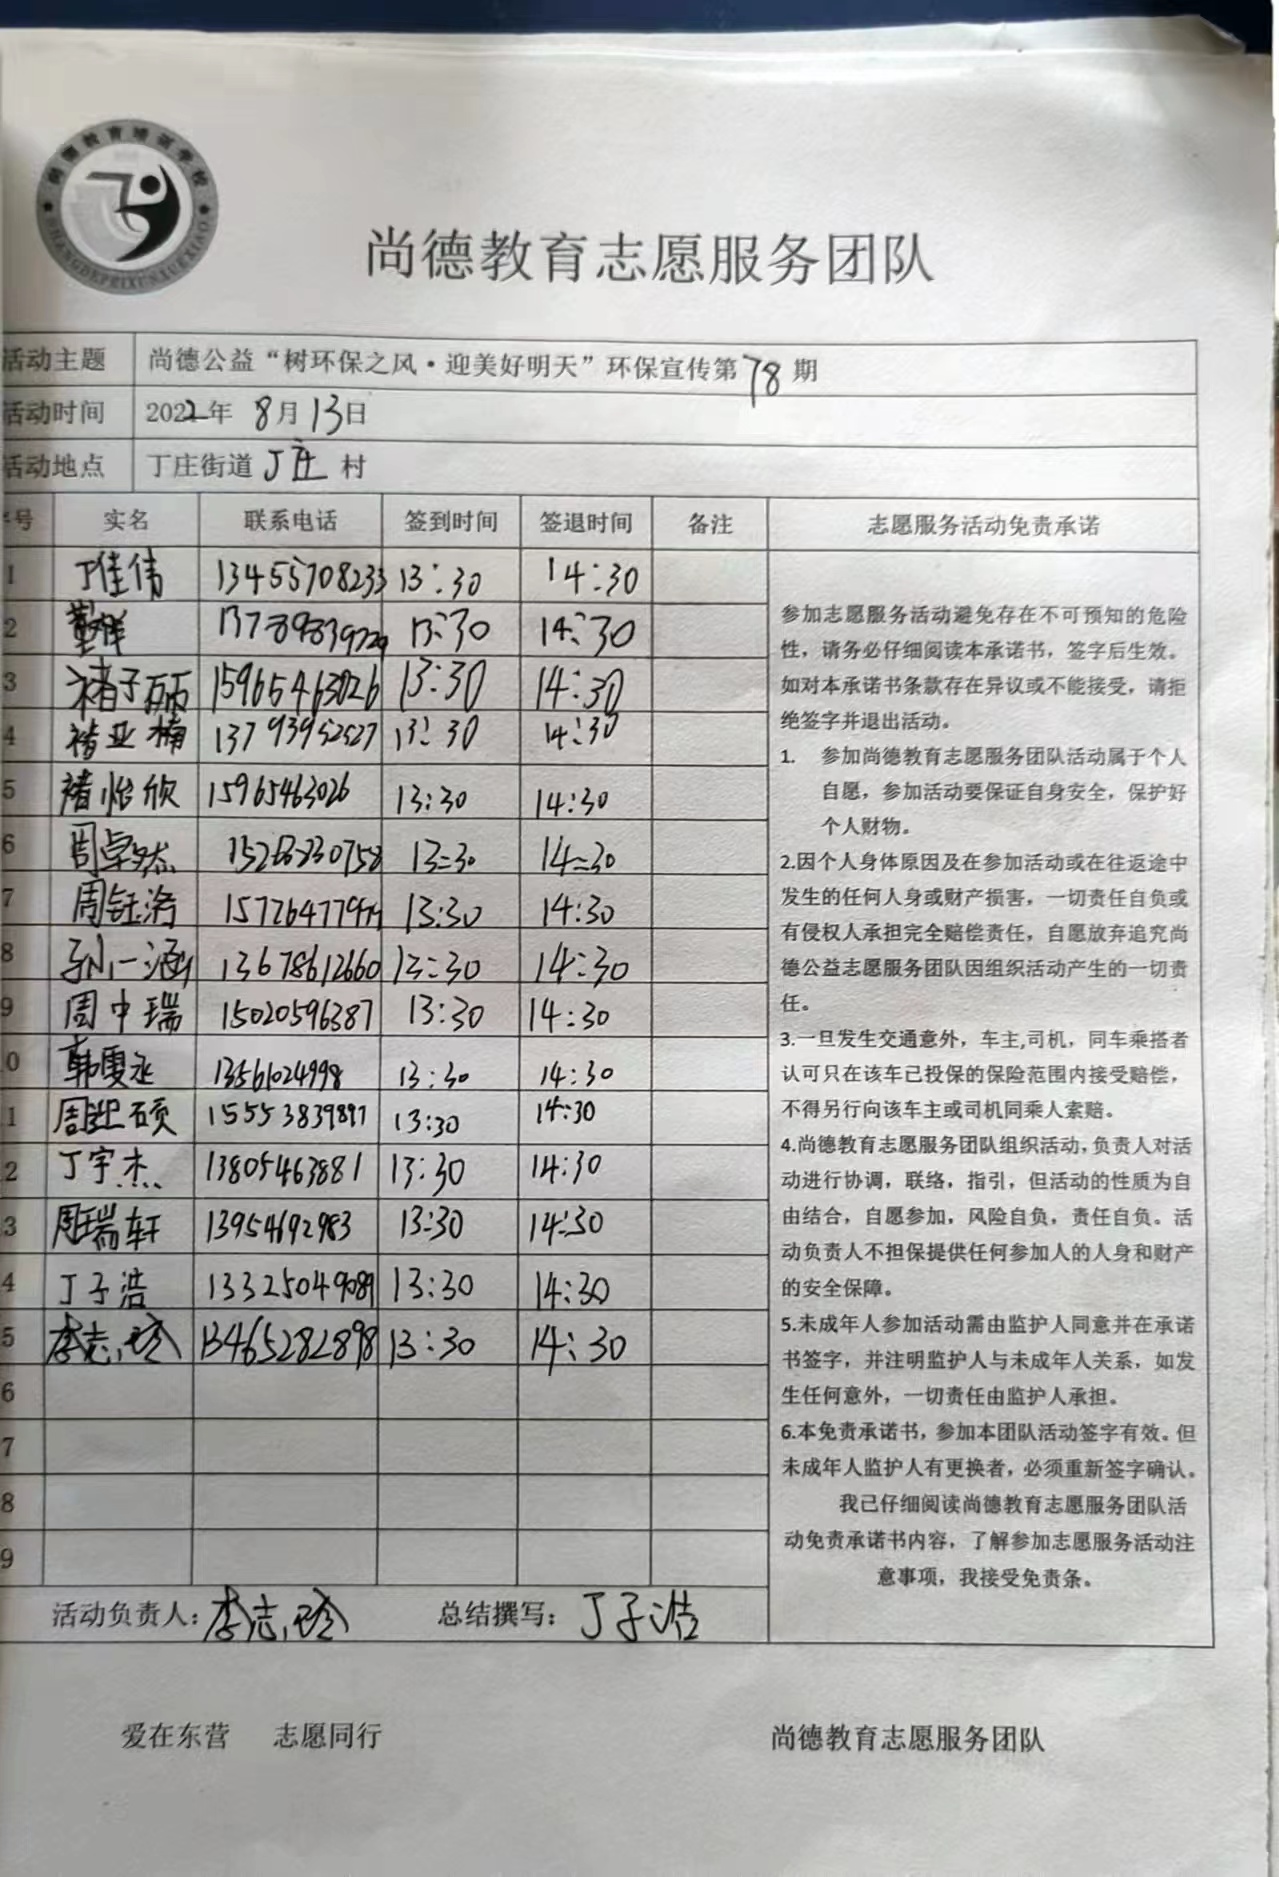 尚德教育培训学校
SHANGDEPEIXUNXUEXIAO
尚德教育志愿服务团队
活动主题 尚德公益“树环保之风·迎美好明天”环保宣传第78期
活动时间 2022年 8月13日
活动地点 丁庄街道丁庄村
序号 实名 联系电话 签到时间 签退时间 备注 志愿服务活动免责承诺
1 丁佳伟 13455708233 13:30 14:30
2 13:30 14:30
3 褚子砺 15965463026 13:30 14:30
4 褚亚楠 13793952527 13:30 14:30
5 褚怡欣 15965463026 13:30 14:30
6 周卓然 13:30 14:30
7 周钰涛 13:30 14:30
8 孙一涵 13678612660 13:30 14:30
9 周中瑞 15020596387 13:30 14:30
10 韩雯丞 13561024998 13:30 14:30
11 周 硕 15553839897 13:30 14:30
12 丁宇杰 13805463881 13:30 14:30
13 周瑞轩 13954692983 13:30 14:30
14 丁子浩 13325049089 13:30 14:30
15 李志玲 13465282898 13:30 14:30
6
7
8
9
参加志愿服务活动避免存在不可预知的危险
性，请务必仔细阅读本承诺书，签字后生效。
如对本承诺书条款存在异议或不能接受，请拒
绝签字并退出活动。
1. 参加尚德教育志愿服务团队活动属于个人
自愿，参加活动要保证自身安全，保护好
个人财物。
2.因个人身体原因及在参加活动或在往返途中
发生的任何人身或财产损害，一切责任自负或
有侵权人承担完全赔偿责任，自愿放弃追究尚
德公益志愿服务团队因组织活动产生的一切责
任。
3.一旦发生交通意外，车主,司机，同车乘搭者
认可只在该车已投保的保险范围内接受赔偿，
不得另行向该车主或司机同乘人索赔。
4.尚德教育志愿服务团队组织活动，负责人对活
动进行协调，联络，指引，但活动的性质为自
由结合，自愿参加，风险自负，责任自负。活
动负责人不担保提供任何参加人的人身和财产
的安全保障。
5.未成年人参加活动需由监护人同意并在承诺
书签字，并注明监护人与未成年人关系，如发
生任何意外，一切责任由监护人承担。
6.本免责承诺书，参加本团队活动签字有效。但
未成年人监护人有更换者，必须重新签字确认。
我已仔细阅读尚德教育志愿服务团队活
动免责承诺书内容，了解参加志愿服务活动注
意事项，我接受免责条。
活动负责人：李志玲 总结撰写：丁子浩
爱在东营 志愿同行 尚德教育志愿服务团队